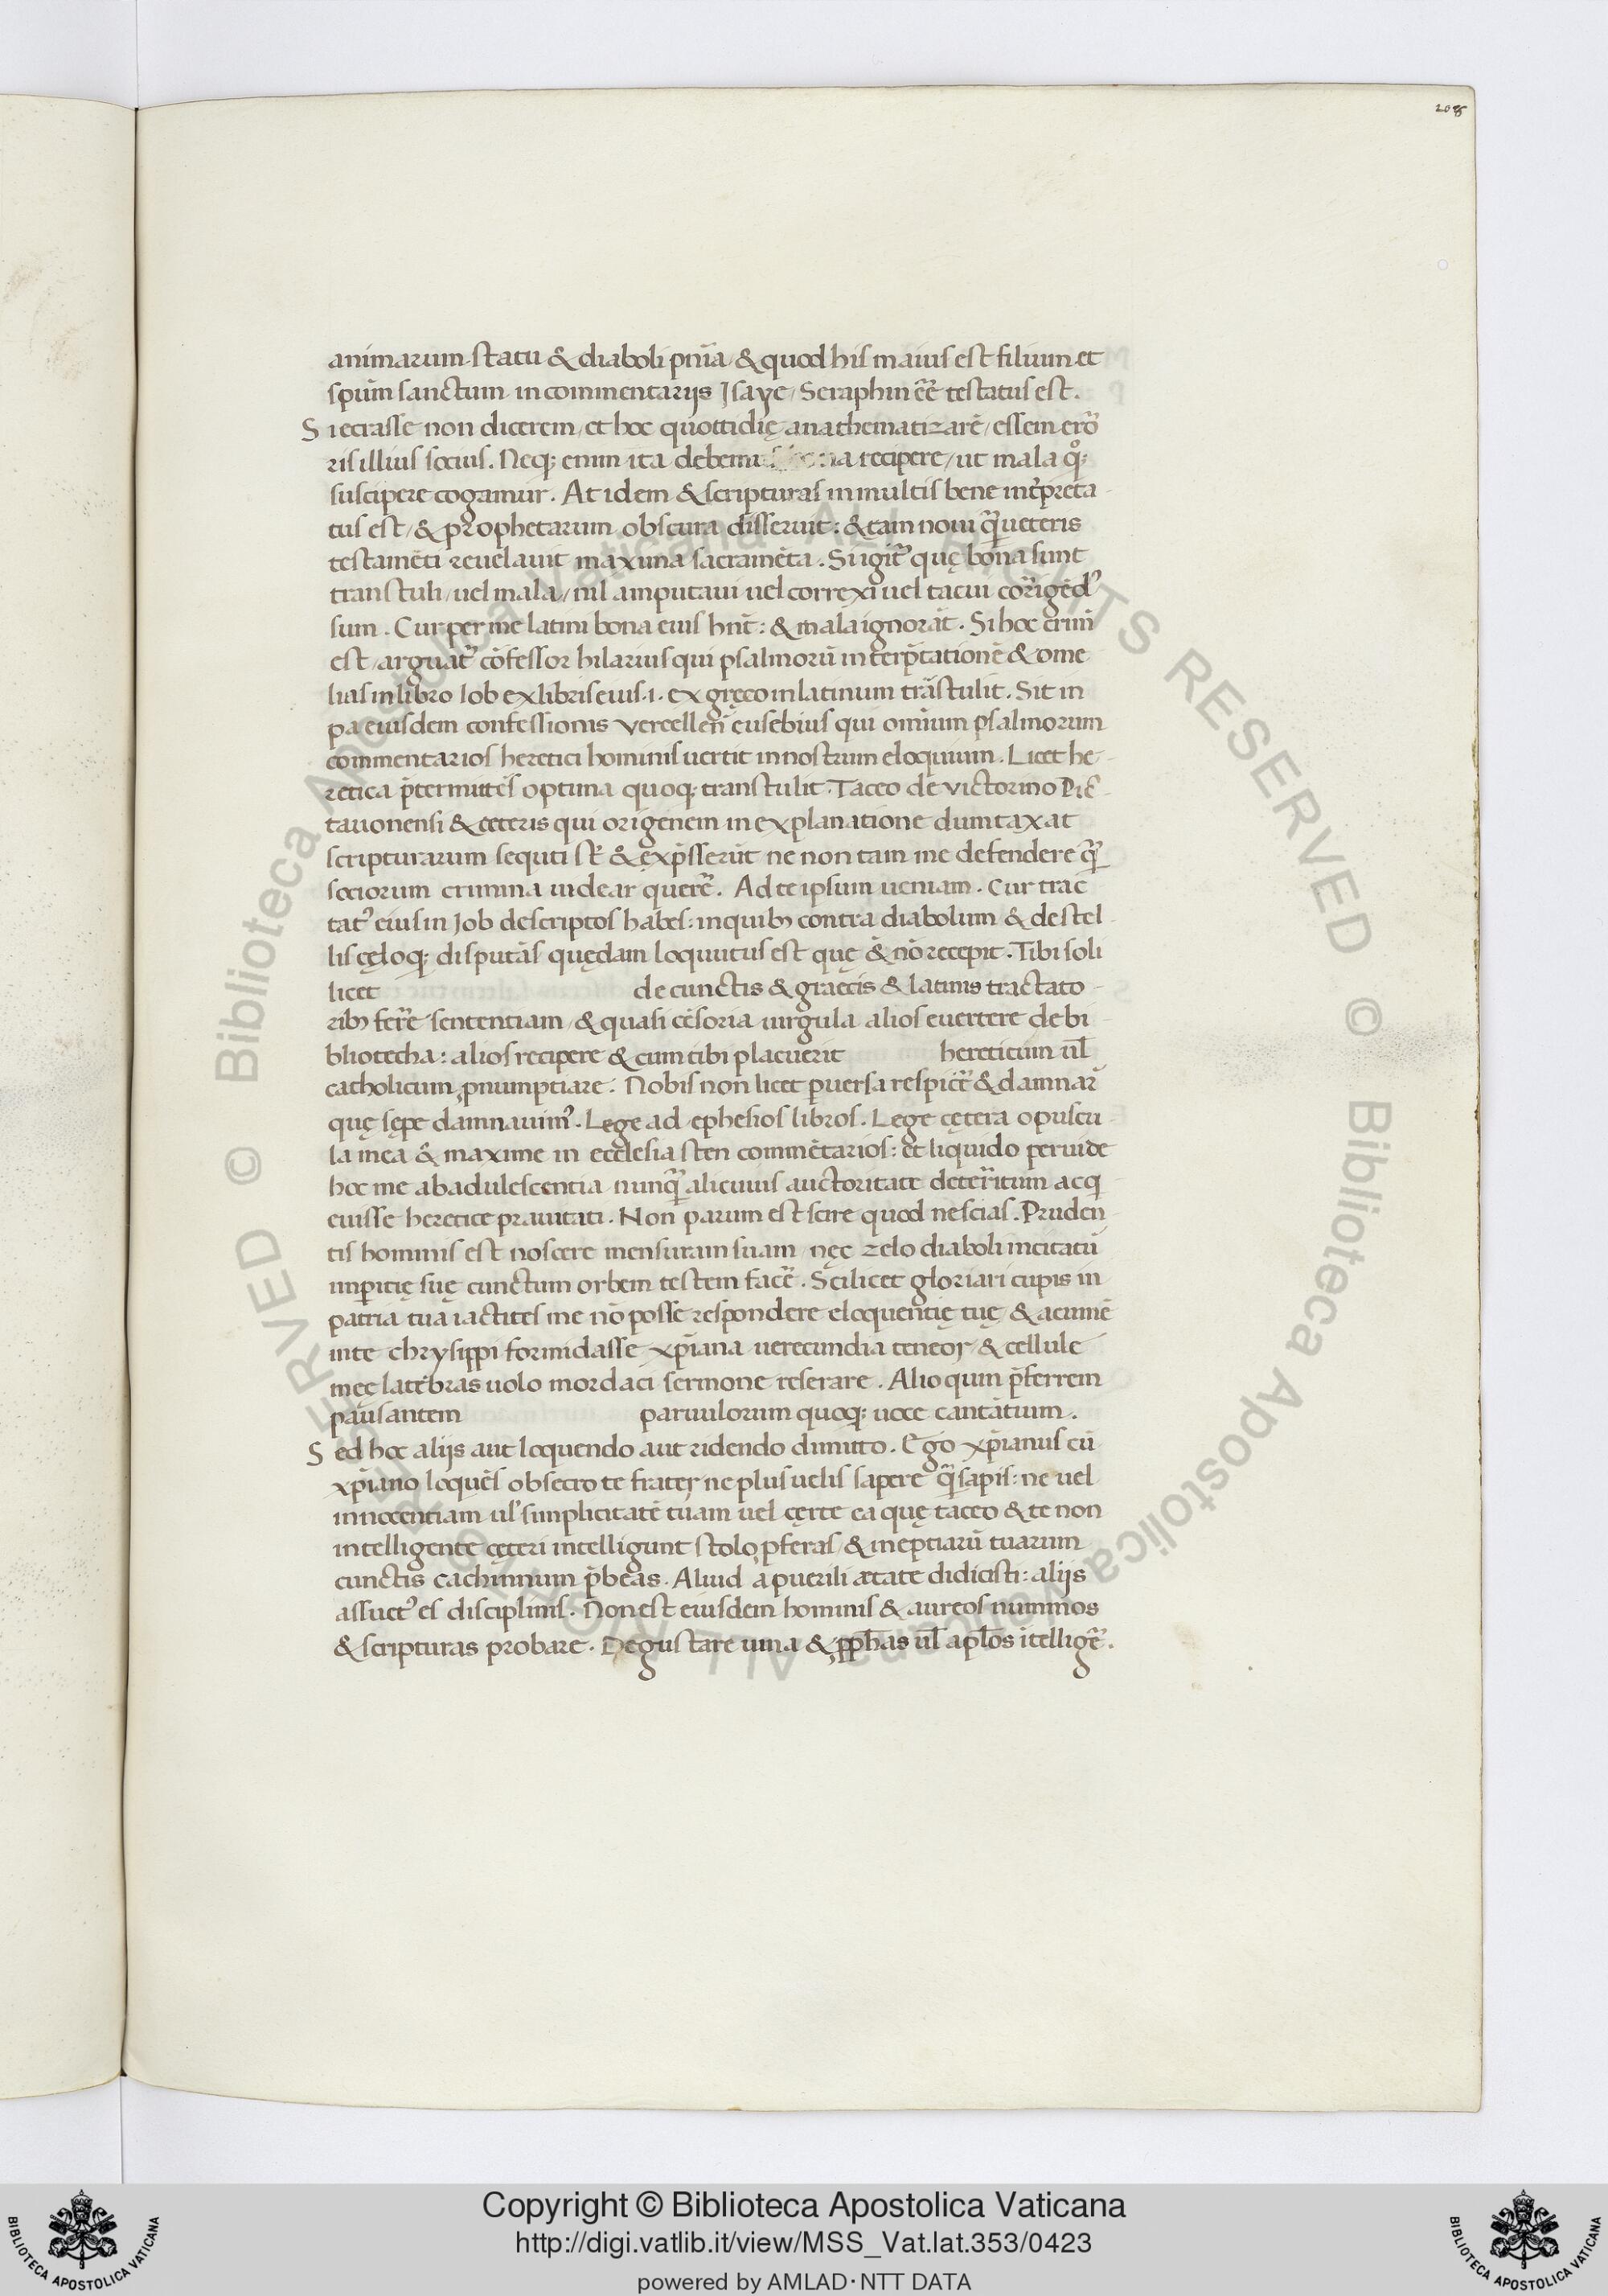 208
animarum statu & diaboli pn̄ia / & quod his maius est filium et
sp̄um sanctum in commentarijs Isaye / Seraphin eē̄ testatus est .
Si errasse non dicerem / et hoc quottidię anathematizarē / essem erro
ris illius socius . Neq; enim ita recipere / ut mala qͦ;
suscipere cogamur . At idem & scripturas in multis bene int̄preta
tus est / & prophetarum obscura disseruit : & tam noui q̄ ueteris
testamēti reuelauit maxima sacramēta . Si igit̄ quę bona sunt
transtuli / uel mala / nil amputaui uel correxi uel tacui corrigēdꝰ
sum . Cur per me latini bona eius hn̄t : & mala ignorāt . Si hoc crim̄
est / arguat̄ cōfessor hilarius qui psalmorū interp̄tationē & ome
lias in libro Iob ex libris eius .i. ex gręco in latinum trāstulit . Sit in
pa eiusdem confessionis Vercellen̄ eusebius qui omīum psalmorum
commentarios heretici hominis uertit in nostrum eloquium . Licet he
retica p̄termittēs optima quoq; transtulit . Taceo de victorino Pic
tauonensi & ceteris qui origenem in explanatione dumtaxat
scripturarum sequti sт̄ & exp̄sserūt ne non tam me defendere q̄
sociorum crimina uidear querē . Ad te ipsum ueniam . Cur trac
tatꝰ eius in Job descriptos habes : in quibꝫ contra diabolum & de stel
lis cęloq; disputās quędam loquutus est quę & nō recepit . Tibi soli
licet de cunctis & graecis & latinis tractato
ribꝫ ferre sententiam / & quasi cēsoria uirgula alios euertere de bi
bliotecha : alios recipere & cum tibi placuerit hereticum ul̄
catholicum ꝓnumptiare . Nobis non licet puersa respicē & damnar̄
quę sępe damnauimꝰ . Lege ad ephesios libros . Lege cętera opuscu
la mea & maxime in ecclesiasten commētarios : et liquido peruide
hoc me ab adulescentia nunq̄ alicuius auctoritate deterritum acq
euisse heretice prauitati . Non parum est scire quod nescias . Pruden
tis hominis est noscere mensuram suam nęc zelo diaboli incitatū
imperitię suę cunctum orbem testem facē . Scilicet gloriari cupis in
patria tua iactites me nō posse respondere eloquentię tuę & acumē
in te chrysippi formidasse xp̄iana uerecundia teneor & cellule
meę latebras uolo mordaci sermone reserare . Alioquin p̄ferrem
pausantem paruulorum quoq; uoce cantātium .
Sed hoc alijs aut loquendo aut ridendo dimitto . Ego xp̄ianus cū
xp̄iano loquēs obsecro te frater ne plus uelis sapere q̄ sapis : ne uel
innocentiam ul̄ simplicitatē tuam uel cęrte ea quę taceo & te non
intelligente cęteri intelligunt stolo ꝓferas / & ineptiarū tuarum
cunctis cachinnum p̄beas . Aliud a puerili ætate didicisti : alijs
assuetꝰ es disciplinis . Non est eiusdem hominis & aureos nummos
& scripturas probare . Degustare uina & ꝓph̄as ul̄ apl̄os ītelligē .
© Biblioteca Apostolica Vaticana ALL RIGHTS RESERVED
Copyright © Biblioteca Apostolica Vaticana
http://digi.vatlib.it/view/MSS_Vat.lat.353/0423
powered by AMLAD·NTT DATA
BIBLIOTECA APOSTOLICA VATICANA
BIBLIOTECA APOSTOLICA VATICANA